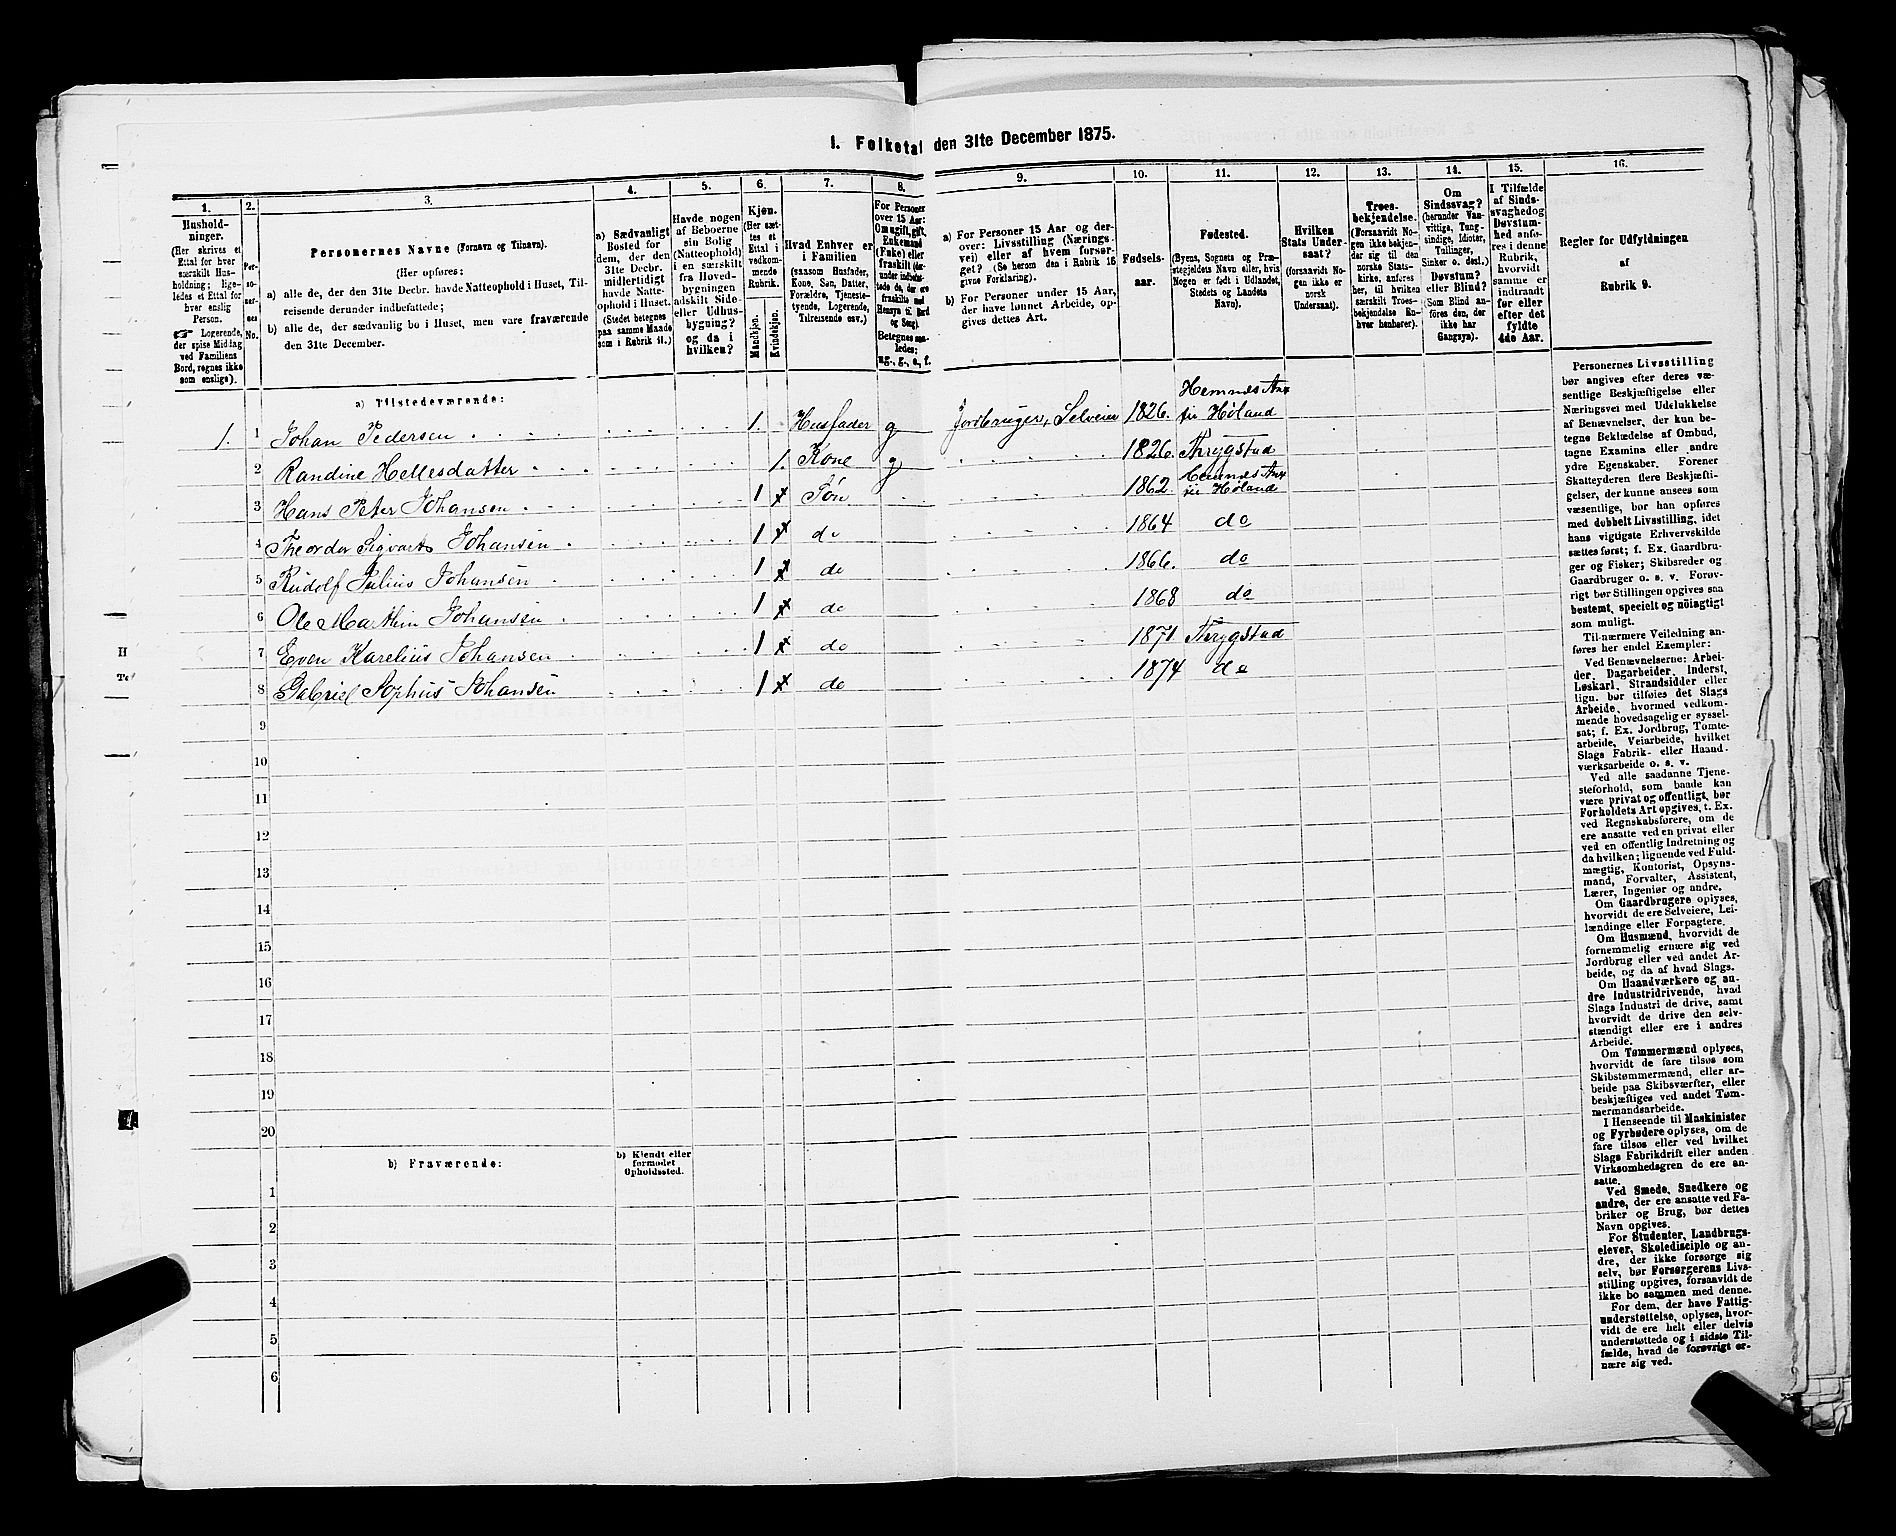 1. Folketal den 31te December 1875.
1. 2. 3. 4. 5. 6. 7. 8. 9. 10. 11. 12. 13. 14. 15. 16.
Hushold-
ninger.
(Her skrives et
Ettal for hver
særskilt Hus-
holdning; lige-
ledes et Ettal for
hver enslig
Person.
☞ Logerende,
der spise Middag
ved Familiens
Bord, regnes ikke
som enslige).
Per-
so-
ner-
nes
No.
Personernes Navne (Fornavn og Tilnavn).
(Her opføres:
a) alle de, der den 31te Decbr. havde Natteophold i Huset, Til-
reisende derunder indbefattede;
b) alle de, der sædvanlig bo i Huset, men vare fraværende
den 31te December.
a) Sædvanligt
Bosted for
dem, der den
31te Decbr.
midlertidigt
havde Natte-
ophold i Huset.
(Stedet betegnes
paa samme Maade
som i Rubrik 11.)
Havde nogen
af Beboerne
sin Bolig
(Natteophold)
i en særskilt
fra Hoved-
bygningen
adskilt Side-
eller Udhus-
bygning?
og da i
hvilken?
Kjøn.
(Her sæt-
tes et
Ettal i
vedkom-
mende
Rubrik.
Mandkjøn.
Kvindekjøn.
Hvad Enhver er
i Familien
(saasom Husfader,
Kone, Søn, Datter,
Forældre, Tjeneste-
tyende, Logerende,
Tilreisende osv.)
For Personer
over 15 Aar:
Om ugift, gift,
Enkemand
(Enke) eller
fraskilt
Betegnes saa-
ledes:
ug., g., e., f.
a) For Personer 15 Aar og der-
over: Livsstilling (Nærings-
vei) eller af hvem forsør-
get? (Se herom den i Rubrik 16
givne Forklaring).
b) For Personer under 15 Aar,
der have lønnet Arbeide, op-
gives dettes Art.
Fødsels-
aar.
Fødested.
(Byens, Sognets og Præ-
stegjeldets Navn eller, hvis
Nogen er født i Udlandet,
Stedets og Landets
Navn).
Hvilken
Stats Under-
saat?
(forsaavidt No-
gen ikke er
norsk
Undersaat).
Troes-
bekjendelse.
(Forsaavidt No-
gen ikke bekjen-
der sig til den
norske Stats-
kirke, anføres
her, til hvilken
særskilt Troes-
bekjendelse En-
hver henhører).
Om
Sindssvag?
(herunder Van-
vittige, Tung-
sindige, Idioter,
Tullinger,
Sinker o. desl.)
Døvstum?
eller Blind?
(Som Blind an-
føres den, der
ikke har
Gangsyn).
I Tilfælde
af Sinds-
svaghed og
Døvstum-
hed anfø-
res i denne
Rubrik,
hvorvidt
samme er
indtraadt
før eller
efter det
fyldte
4de Aar.
Regler for Udfyldningen
af
Rubrik 9.
a) Tilstedeværende:
1. 1 Johan Pedersen 1. Husfader g Jordbruger, Selveier 1826. Hemnes Anx til Høland
2 Randine Hellesdatter 1. Kone g 1826. Thrygstad
3 Hans Peter Johansen 1 x Søn 1862. Hemnes Anx til Høland
4 Theordor Sigvarts Johansen 1 x do 1864 do
5 Rudolf Julius Johansen 1 x do 1866. do
6 Ole Marthin Johansen 1 x do 1868 do
7 Even Karelius Johansen 1 x do 1871 Thrygstad
8 Gabriel Sophus Johansen 1 x do 1874 do
9
10
11
12
13
14
15
16
17
18
19
20
b) Fraværende:
b) Kjendt eller
formodet
Opholdssted.
1
2
3
4
5
6
Personernes Livsstilling
bør angives efter deres væ-
sentlige Beskjæftigelse eller
Næringsvei med Udelukkelse
af Benævnelser, der kun be-
tegne Beklædelse af Ombud,
tagne Examina eller andre
ydre Egenskaber. Forener
Skatteyderen flere Beskjæfti-
gelser, der kunne ansees som
væsentlige, bør han opføres
med dobbelt Livsstilling, idet
hans vigtigste Erhvervskilde
sættes først; f. Ex. Gaardbru-
ger og Fisker; Skibsreder og
Gaardbruger o. s. v. Forøv-
rigt bør Stillingen opgives saa
bestemt, specielt og nøiagtigt
som muligt.
Til nærmere Veiledning an-
føres her endel Exempler:
Ved Benævnelserne: Arbei-
der, Dagarbeider, Inderst,
Løskarl, Strandsidder eller
lign. bør tilføies det Slags
Arbeide, hvormed vedkom-
mende hovedsagelig er syssel-
sat; f. Ex. Jordbrug, Tømte-
arbeide, Veiarbeide, hvilket
Slags Fabrik- eller Haand-
værksarbeide o. s. v.
Ved alle saadanne Tjene-
steforhold, som baade kan
være privat og offentligt, bør
Forholdets Art opgives, t. Ex.
ved Regnskabsførere, om de
ere ansatte ved en privat eller
ved en offentlig Indretning og
da hvilken; lignende ved Fuld-
mægtig, Kontorist, Opsyns-
mand, Forvalter, Assistent,
Lærer, Ingeniør og andre.
Om Gaardbrugere oplyses,
hvorvidt de ere Selveiere, Lei-
lændinge eller Forpagtere.
Om Husmænd, hvorvidt de
fornemmelig ernære sig ved
Jordbrug eller ved andet Ar-
beide, og da af hvad Slags.
Om Haandværkere og an-
dre Industridrivende, hvad
Slags Industri de drive, samt
hvorvidt de drive den selv-
stændigt eller ere i andres
Arbeide.
Om Tømmermænd oplyses,
hvorvidt de fare tilsøs som
Skibstømmermænd, eller ar-
beide paa Skibsværfter, eller
beskjæftiges ved andet Tøm-
mermandsarbeide.
I Henseende til Maskinister
og Fyrbødere oplyses, om de
fare tilsøs eller ved hvilket
Slags Fabrikdrift eller anden
Virksomhedsgren de ere an-
satte.
Ved Smede, Snedkere og
andre, der ere ansatte ved Fa-
briker og Brug, bør dettes
Navn opgives.
For Studenter, Landbrugs-
elever, Skoledisciple og an-
dre, der ikke forsørge sig
selv, bør Forsørgerens Livs-
stilling opgives, forsaavidt de
ikke bo sammen med denne.
For dem, der have Fattig-
understøttelse, oplyses, hvor-
vidt de ere helt eller delvis
understøttede og i sidste Til-
fælde, hvad de forøvrigt er-
nære sig ved.